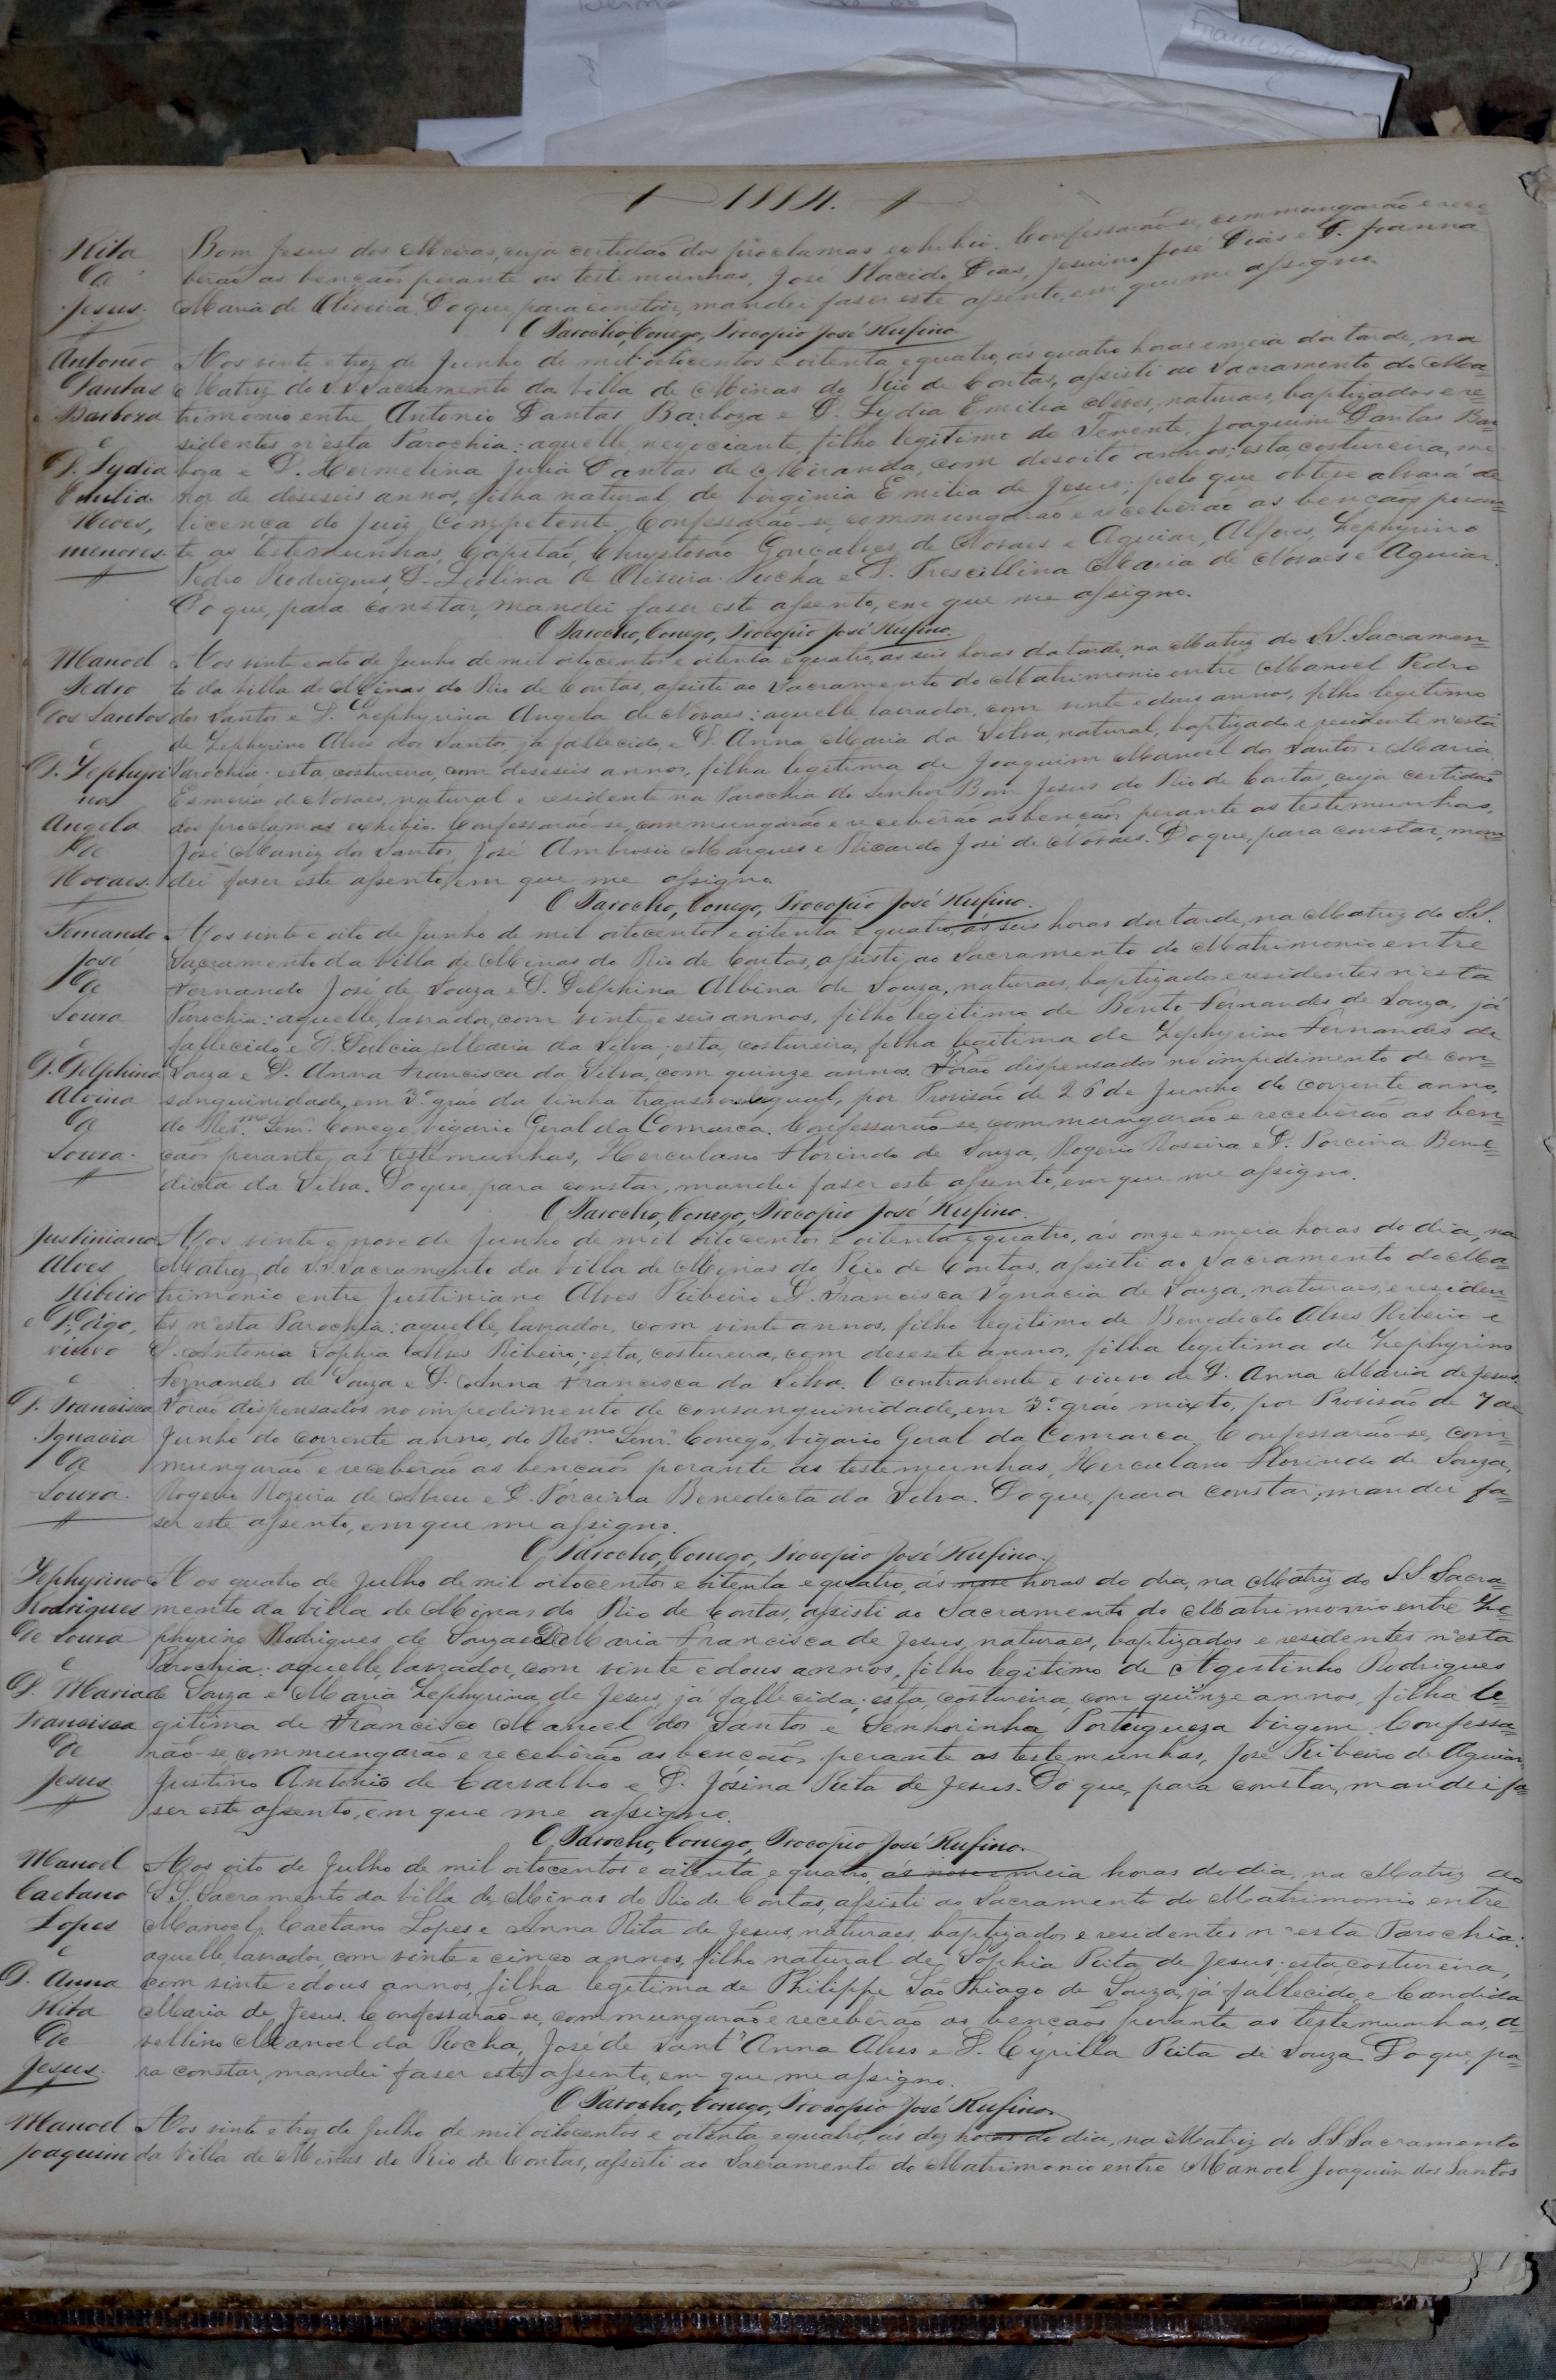 1884.
Rita
de
Jesus.
Bom Jesus dos Meiras, cuja certidão dos proclamas exhibio. Confessarão-se, commungarão e rece=
berão as bençaõs perante as testemunhas, José Placido Dias, Jesuino José Dias e D. Joanna
Maria de Oliveira. Do que, para constar, mandei faser este assento, em que me assigno.
O Parocho, Conego, Procopio José Rufino
Antonio
Dantas
Barboza
e
D. Lydia
Emilia
Neves,
menores.
Aos vinte e trez de Junho de mil oitocentos e oitenta e quatro, ás quatro horas e meia da tarde, na
Matriz do S.S. Sacramento da Villa de Minas do Rio de Contas, assisti ao Sacramento do Ma=
trimonio entre Antonio Dantas Barboza e D. Lydia Emilia Neves, naturaes, baptizados e re=
sidentes n'esta Parochia: aquelle, negociante, filho legitimo do Tenente, Joaquim Dantas Bar=
boza e D. Hermelina Julia Dantas de Miranda, com desoito annos; esta costureira, me=
nor de deseseis annos, filha natural de Virginia Emilia de Jesus; pelo que obteve alvará de
licença do Juiz Competente. Confessarão-se, commungarão e receberão as bençaõs peran=
te as testemunhas, Capitão, Chrystovão Gonçalves de Novaes e Aguiar, Alferes, Zephyrino
Pedro Rodrigues, D. Leolina de Oliveira Rocha e D. Prescillina Maria de Novaes e Aguiar.
Do que, para constar, mandei faser este assento, em que me assigno.
O Parocho, Conego, Procopio José Rufino.
Manoel
Pedro
dos Santos
e
D. Zephyri
na
Angela
de
Novaes.
Aos vinte e oito de Junho de mil oitocentos e oitenta e quatro, as seis horas da tarde, na Matriz do S.S. Sacramen=
to da Villa de Minas do Rio de Contas, assisti ao Sacramento do Matrimonio entre Manoel Pedro
dos Santos e D. Zephyrina Angela de Novaes: aquelle, lavrador, com vinte e dous annos, filho legitimo
de Zephyrino Alves dos Santos, já fallecido, e D. Anna Maria da Silva, natural, baptizado e residente n'esta
Parochia: esta, costureira, com deseseis annos, filha legitima de Joaquim Manoel dos Santos e Maria
Esmeria de Novaes, natural e residente na Parochia do Senhor Bom Jesus do Rio de Contas, cuja certidão
dos proclamas exhibio. Confessarão-se, commungarão e receberão as bençaõs perante as testemunhas,
José Muniz dos Santos, José Ambrosio Marques e Ricardo José de Novaes. Do que, para constar, man=
dei faser este assento, em que me assigno
O Parocho, Conego, Procopio José Rufino.
Fernando
José
de
Souza
e
D. Delphina
Alvina
de
Sousa.
Aos vinte e oito de Junho de mil oitocentos e oitenta e quatro, ás seis horas da tarde, na Matriz do S.S.
Sacramento da Villa de Minas do Rio de Contas, assisti ao Sacramento do Matrimonio entre
Fernando José de Souza e D. Delphina Albina de Sousa, naturaes, baptizados e residentes n'esta
Parochia: aquelle, lavrador, com vinte e seis annos, filho legitimo de Bento Fernandes de Souza, já
fallecido e D. Dulcia Maria da Silva; esta, costureira, filha legitima de Zephyrino Fernandes de
Souza e D. Anna Francisca da Silva, com quinze annos. Forão dispensados no impedimento de con=
sanguinidade, em 3.º gráo da linha transversal igual, por Provisão de 26 de Junho do corrente anno,
do Res.mo Senr. Conego, Vigario Geral da Comarca. Confessarão-se, commungarão e receberão as ben=
çaõs perante as testemunhas, Herculano Florindo de Souza, Rogerio Roseira e D. Porcina Bene=
dicta da Silva. Do que, para constar, mandei faser este assento, em que me assigno.
O Parocho, Conego, Procopio José Rufino.
Justiniano
Alves
Ribeiro
e D. digo,
viuvo
e
D. Francisca
Ignacia
de
Souza.
Aos vinte e nove de Junho de mil oitocentos e oitenta e quatro, ás onze e meia horas do dia, na
Matriz do S.S. Sacramento da Villa de Minas do Rio de Contas, assisti ao Sacramento do Ma=
trimonio entre Justiniano Alves Ribeiro e D. Francisca Ignacia de Souza, naturaes, e residen=
tes n'esta Parochia: aquelle, lavrador, com vinte annos, filho legitimo de Benedicto Alves Ribeiro e
D. Antonia Sophia Alves Ribeiro; esta, costureira, com desesete annos, filha legitima de Zephyrino
Fernandes de Souza e D. Anna Francisca da Silva. O contrahente é viuvo de D. Anna Maria de Jesus.
Forão dispensados no impedimento de consanguinidade, em 3.º gráo mixto, por Provisão de 7 de
Junho do corrente anno, do Res.mo Senr. Conego, Vigario Geral da Comarca. Confessarão-se, com=
mungarão e receberão as bençaõs perante as testemunhas, Herculano Florindo de Souza,
Rogerio Rozeira de Abreu e D. Porcina Benedicta da Silva. Do que, para constar, mandei fa=
ser este assento, em que me assigno.
O Parocho, Conego, Procopio José Rufino.
Zephyrino
Rodrigues
de Souza
e
D. Maria
Francisca
de
Jesus
Aos quatro de Julho de mil oitocentos e oitenta e quatro, ás nove horas do dia, na Matriz do S.S. Sacra=
mento da Villa de Minas do Rio de Contas, assisti ao Sacramento do Matrimonio entre Ze=
phyrino Rodrigues de Souza e D. Maria Francisca de Jesus, naturaes, baptizados e residentes n'esta
Parochia: aquelle, lavrador, com vinte e dous annos, filho legitimo de Agostinho Rodrigues
de Souza e Maria Zephyrina de Jesus, já fallecida; esta, costureira, com quinze annos, filha le=
gitima de Francisco Manoel dos Santos e Senhorinha Portugueza Virgem. Confessa=
rão-se, commungarão e receberão as bençaõs perante as testemunhas, José Ribeiro de Aguiar,
Justino Antonio de Carvalho e D. Jósina Rita de Jesus. Do que, para constar, mandei fa=
ser este assento, em que me assigno.
O Parocho, Conego, Procopio José Rufino.
Manoel
Caetano
Lopes
e
D. Anna
Rita
de
Jesus.
Aos oito de Julho de mil oitocentos e oitenta e quatro, ás nove e meia horas do dia, na Matriz do
S.S. Sacramento da Villa de Minas do Rio de Contas, assisti ao Sacramento do Matrimonio entre
Manoel Caetano Lopes e Anna Rita de Jesus, naturaes, baptizados e residentes n'esta Parochia:
aquelle, lavrador, com vinte e cinco annos, filho natural de Sophia Rita de Jesus; esta costureira,
com vinte e dous annos, filha legitima de Philippe São Thiago de Souza, já fallecido, e Candida
Maria de Jesus. Confessarão-se, commungarão e receberão as bençaõs perante as testemunhas, A=
vellino Manoel da Rocha, José de Sant'Anna Alves e D. Cyrilla Rita de Souza. Do que, pa=
ra constar, mandei faser este assento, em que me assigno.
O Parocho, Conego, Procopio José Rufino.
Manoel
Joaquim
Aos vinte e trez de Julho de mil oitocentos e oitenta e quatro, ás dez horas do dia, na Matriz do S.S. Sacramento
da Villa de Minas do Rio de Contas, assisti ao Sacramento do Matrimonio entre Manoel Joaquim dos Santos